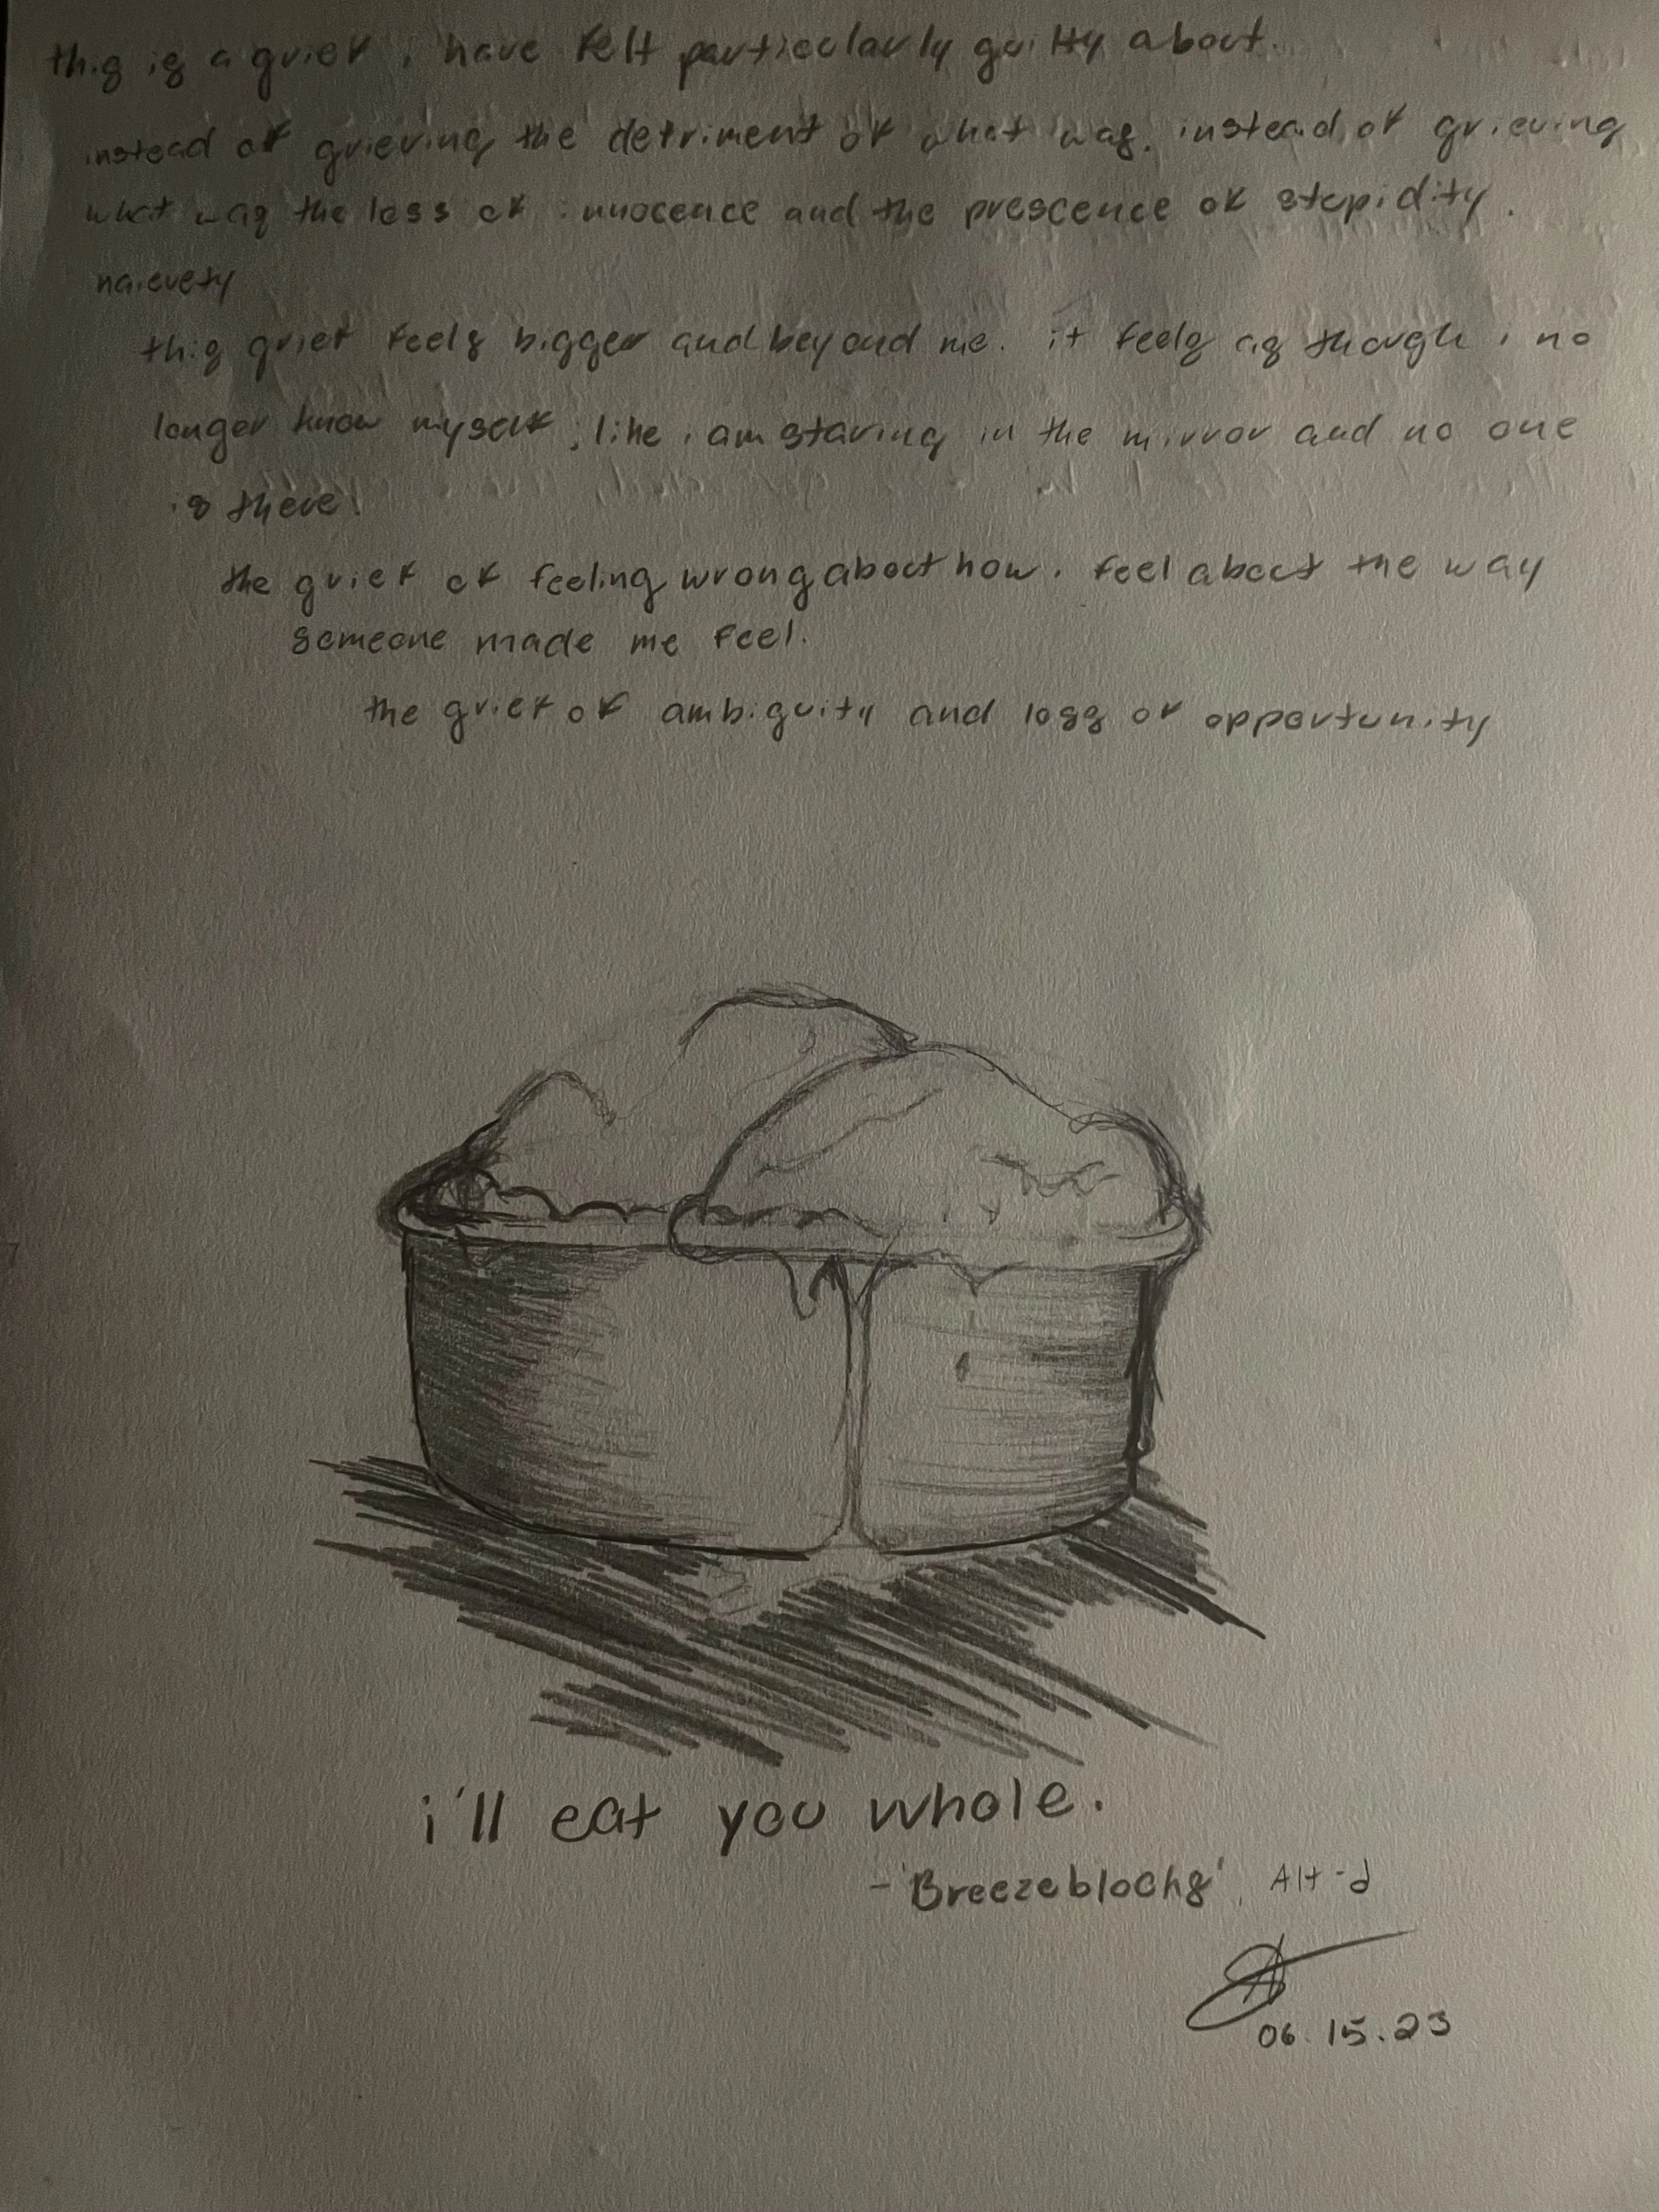 this is a grief i have felt particularly guilty about.
instead of grieving the detriment of what was. instead of grieving
what was the loss of innocence and the prescence of stupidity.
naievety
this grief feels bigger and beyond me. it feels as though i no
longer know myself; like i am staring in the mirror and no one
is there.
the grief of feeling wrong about how i feel about the way
someone made me feel.
the grief of ambiguity and loss of opportunity
i'll eat you whole.
- 'Breezeblocks', Alt-J
06.15.23